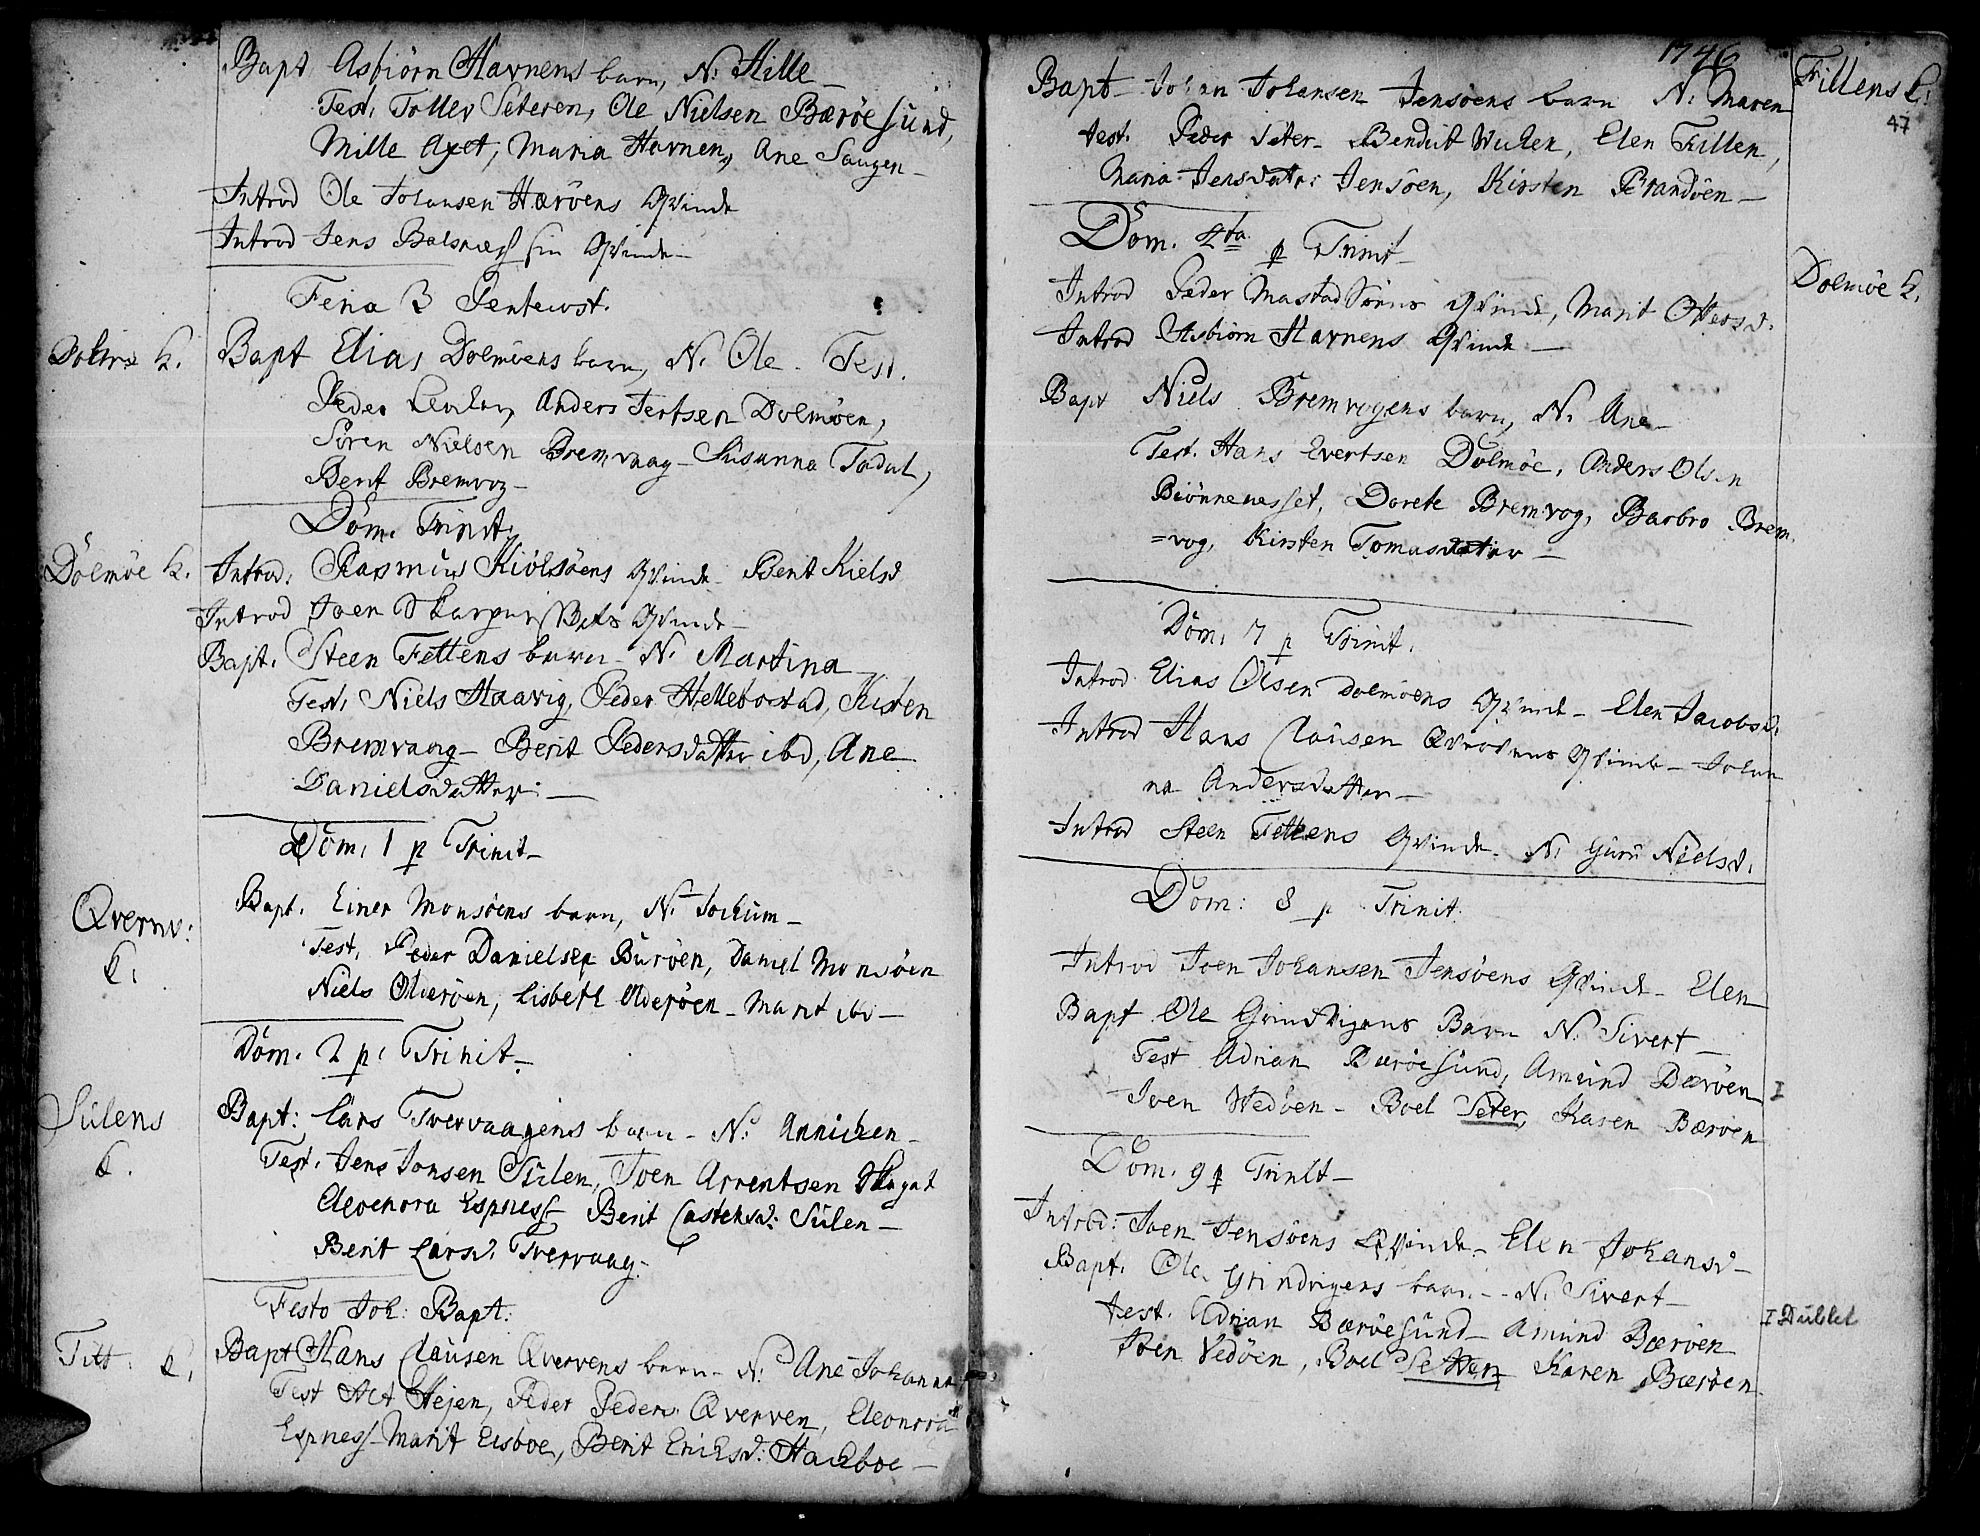 Bapt Asbiörn Havnens barn, N. Hille
Test. Toller Seteren, Ole Nielsen Bæröesund,
Mille Axet, Maria Havnen, Ane Saugen
Introd Ole Johansen Hæröens Qvinde
Introd Jens Balsnæss sin Qvinde
Feria 3 Pentecost.
Dolmö k. Bapt Elias Dolmöens barn, N. Ole. Test.
Peder Anders Dolmöen,
Sören Nielsen Bremvaag Susanna
Berit Bremvog
Dom. Trinit.
Dolmöe k. Introd. Rasmus Kiölsöens Qvinde Berit Kielsd
Introd Joen Qvinde
Bapt. Steen Fettens barn N. Martina
Test. Niels Haavig, Peder Hellebostad, Kisten
Bremvaag Berit Pedersdatter ibd, Ane
Danielsdatter
Dom. 1 p Trinit
Qvernv: k. Bapt. Einer Monsöens barn, N. Jochum
Test. Peder Danielsen Buröen, Daniel Monsöen
Niels Olderöen, Lisbeth Olderöen Marit ibd
Dom. 2 p. Trinit
Sülens k. Bapt: Lars Tvervaagens barn N. Annichen
Test. Jens Jonsen Sülen, Joen Arrentsen Skagat
Eleonora Espness Berit Castensd: Sülen
Berit Larsd. Tvervaag
Festo Joh: Bapt:
Titt. k. Bapt Hans Clausen Qvervens barn N. Ane Johanna
Test Alt Hejen, Peder Peders. Qverven, Eleonora
Espness Marit Eisboe, Berit Ericksd: Hackboe
1746
Fillens k:
47
Bapt Johan Johansen Jensöens barn N. Maren
test. Peder Seter Bendict Wulen, Elen Fillen,
Maria Jensdatr: Jensöen, Kirsten Brandöen
Dom. 4ta p Trinit
Dolmöe k.
Introd Peder Mastad Qvinde, Marit Ottersd.
Introd Asbiörn Havnens Qvinde
Bapt Niels Bremvogens barn, N. Ane
Test. Hans Evertsen Dolmöe, Anders Olsen
Biönnenesset, Dorete Bremvog, Barbro Brem
=vog, Kirsten Tomasdatter
Dom. 7 p Trinit.
Introd Elias Olsen Dolmöens Qvinde Elen Jacobsd.
Introd Hans Clausen Qvervens Qvinde Johan
na Andersdatter
Introd Steen Fettens Qvinde N. Guru Nielsd.
Dom: 8 p Trinit.
Introd Joen Johansen Jensöens Qvinde Elen
Bapt Ole Grindvigens Barn N. Sivert
Test Adrian Bæröesund, Amund Bæröen I
Joen Wedöen Boel Seter, Karen Bæröen
Dom. 9 p Trinit
Introd: Joen Jensöens Qvinde Elen Johansd
Bapt. Ole Grindvigens barn N. Sivert
test. Adrian Bæröesund Amund Bæröen I Dublet
Joen Vedöen, Boel Setter Karen Bæröen